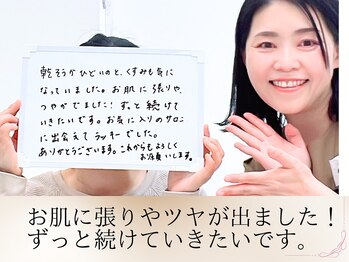 乾そうがひどいのと、くすみも気に
なっていました。お肌に張りや、
つやがでました！ずっと続けて
いきたいです。お気に入りのサロン
に出会えてラッキーでした。
ありがとうございます。これからもよろしく
お願いします。
お肌に張りやツヤが出ました！
ずっと続けていきたいです。